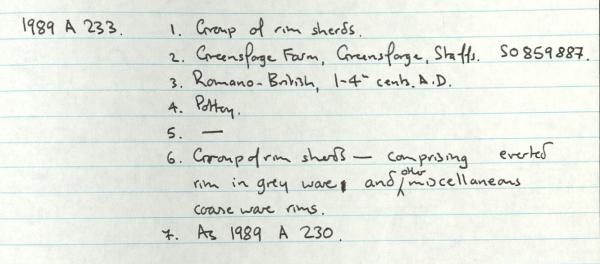 1989 A 233. 1. Group of rim sherds.
2. Greensforge Farm, Greensforge, Staffs. SO859887.
3. Romano-British, 1-4th cents. A.D.
4. Pottery.
5. —
6. Group of rim sherds — comprising everted
rim in grey ware, and other miscellaneous
coarse ware rims.
7. As 1989 A 230.